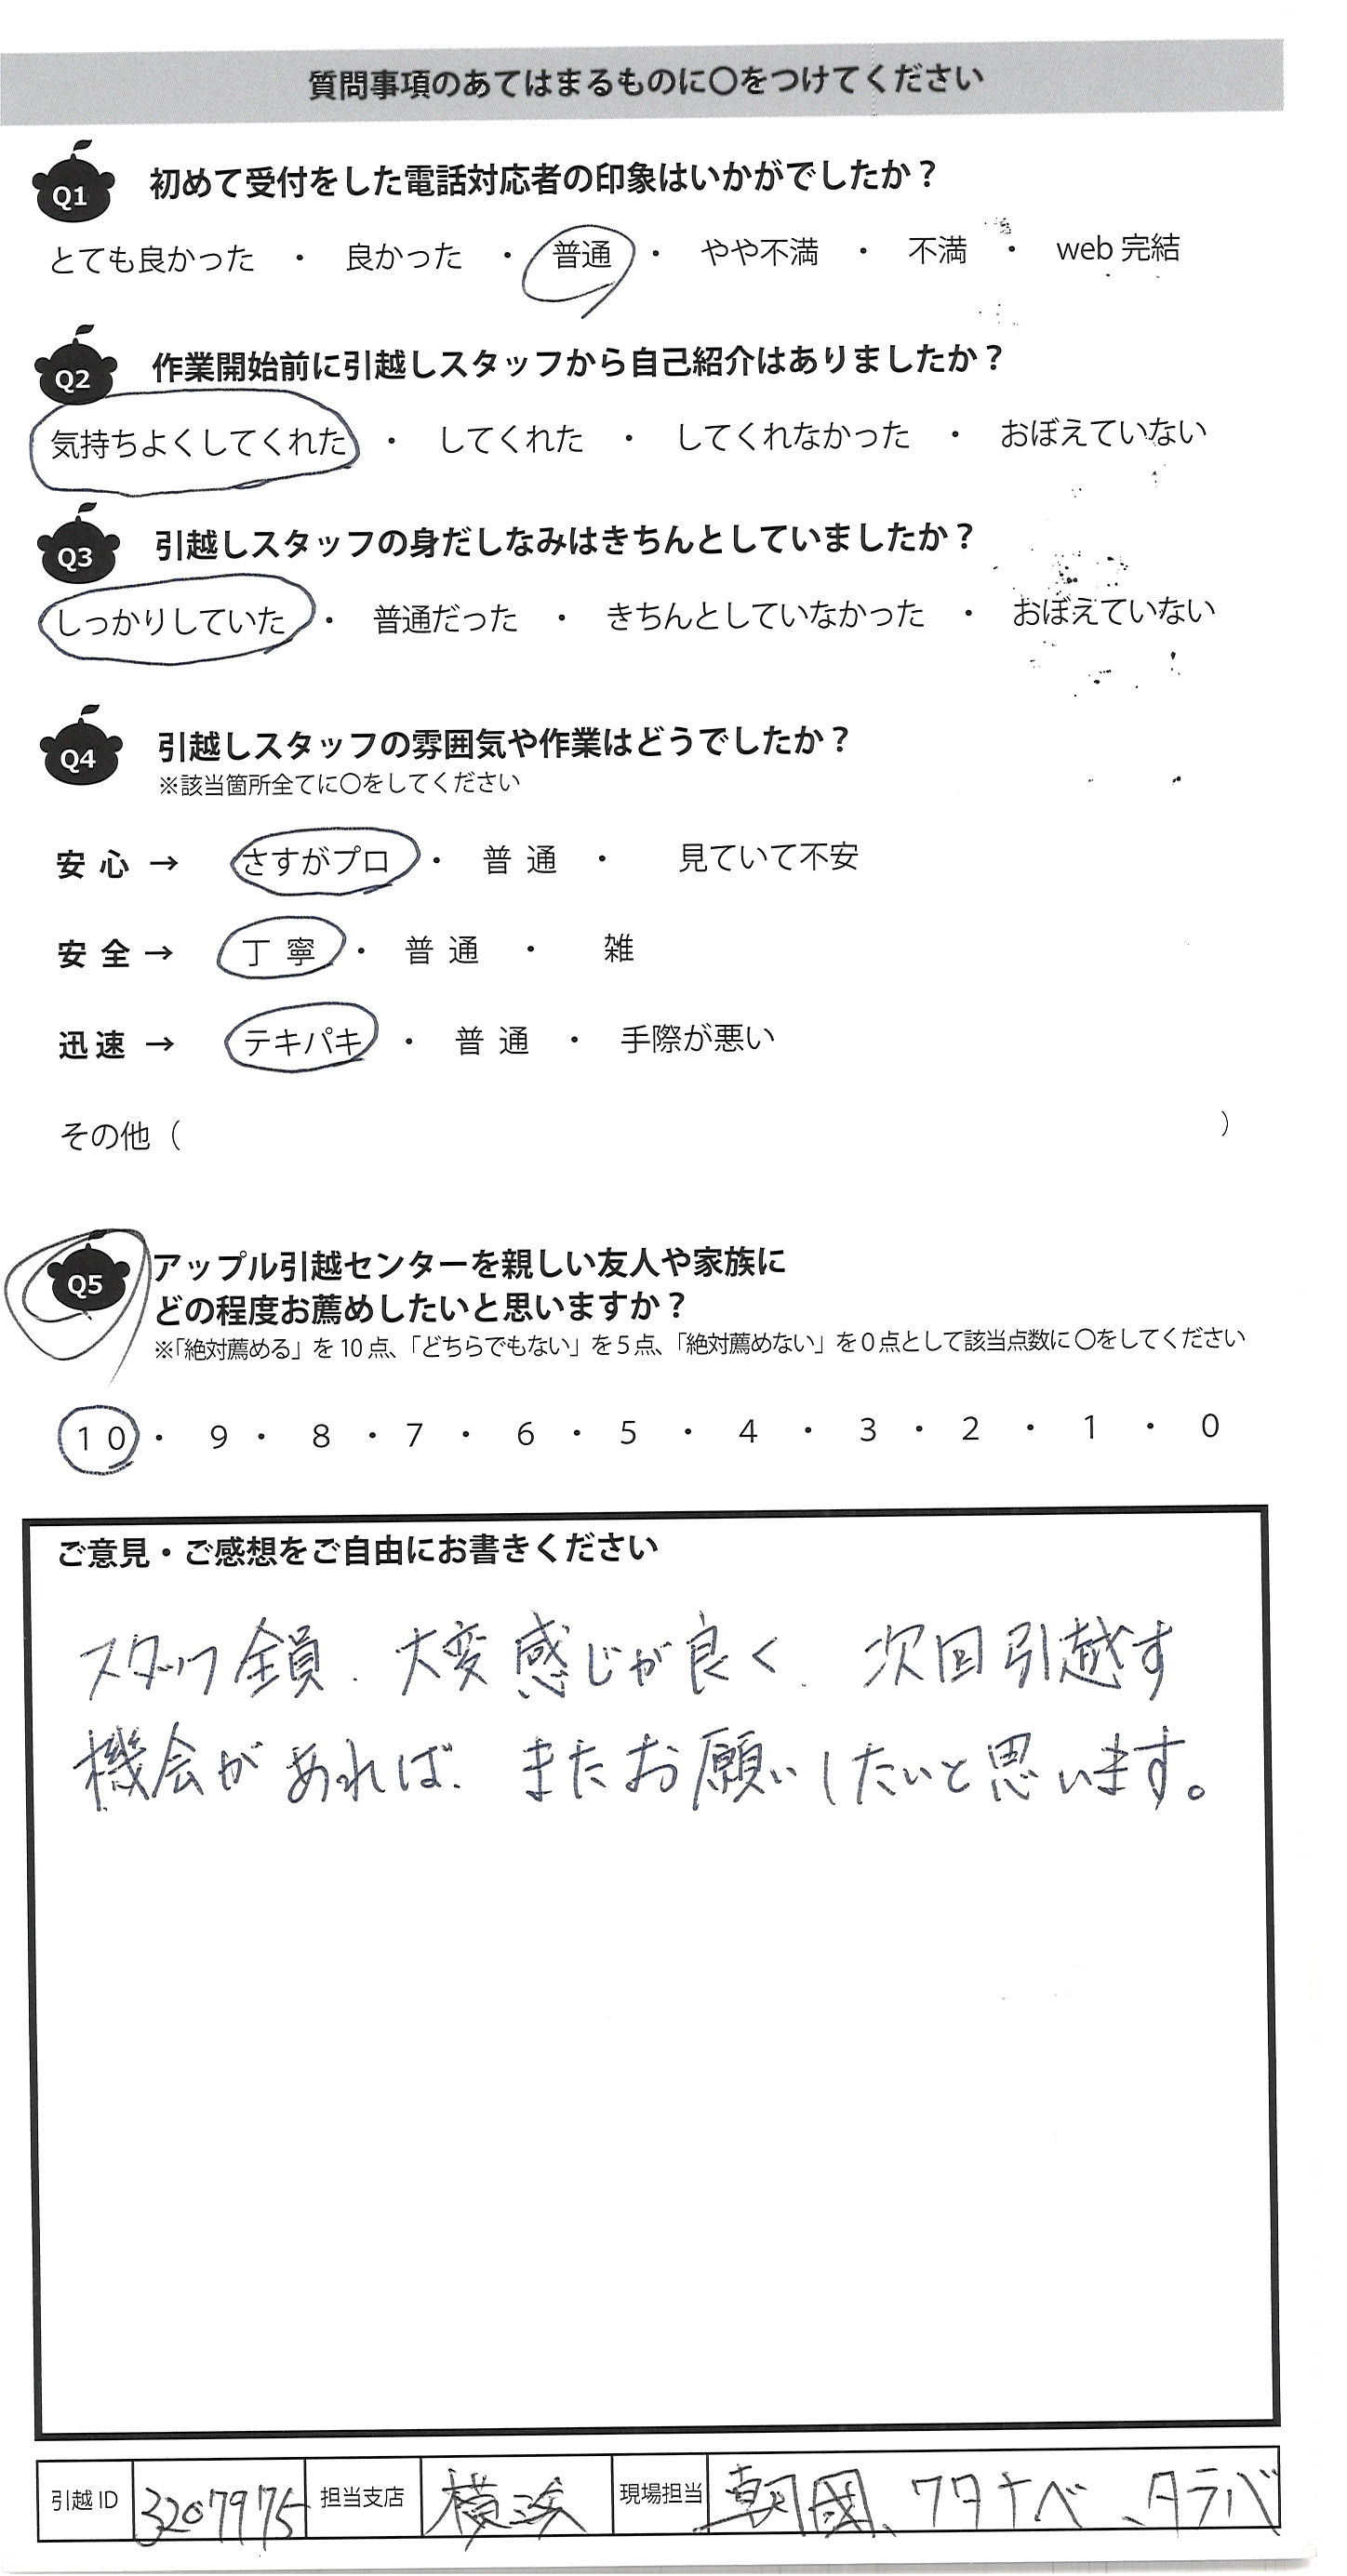 質問事項のあてはまるものに〇をつけてください
Q1 初めて受付をした電話対応者の印象はいかがでしたか？
とても良かった ・ 良かった ・ 普通 ・ やや不満 ・ 不満 ・ web 完結
Q2 作業開始前に引越しスタッフから自己紹介はありましたか？
気持ちよくしてくれた ・ してくれた ・ してくれなかった ・ おぼえていない
Q3 引越しスタッフの身だしなみはきちんとしていましたか？
しっかりしていた ・ 普通だった ・ きちんとしていなかった ・ おぼえていない
Q4 引越しスタッフの雰囲気や作業はどうでしたか？
※該当箇所全てに〇をしてください
安心 → さすがプロ ・ 普通 ・ 見ていて不安
安全 → 丁寧 ・ 普通 ・ 雑
迅速 → テキパキ ・ 普通 ・ 手際が悪い
その他（ ）
Q5 アップル引越センターを親しい友人や家族に
どの程度お薦めしたいと思いますか？
※「絶対薦める」を 10 点、「どちらでもない」を 5 点、「絶対薦めない」を 0 点として該当点数に 〇をしてください
10 ・ 9 ・ 8 ・ 7 ・ 6 ・ 5 ・ 4 ・ 3 ・ 2 ・ 1 ・ 0
ご意見・ご感想をご自由にお書きください
スタッフ全員、大変感じが良く、次回引越す
機会があれば、またお願いしたいと思います。
引越 ID 3207975 担当支店 横浜 現場担当 朝國、ワタナベ、タラバ